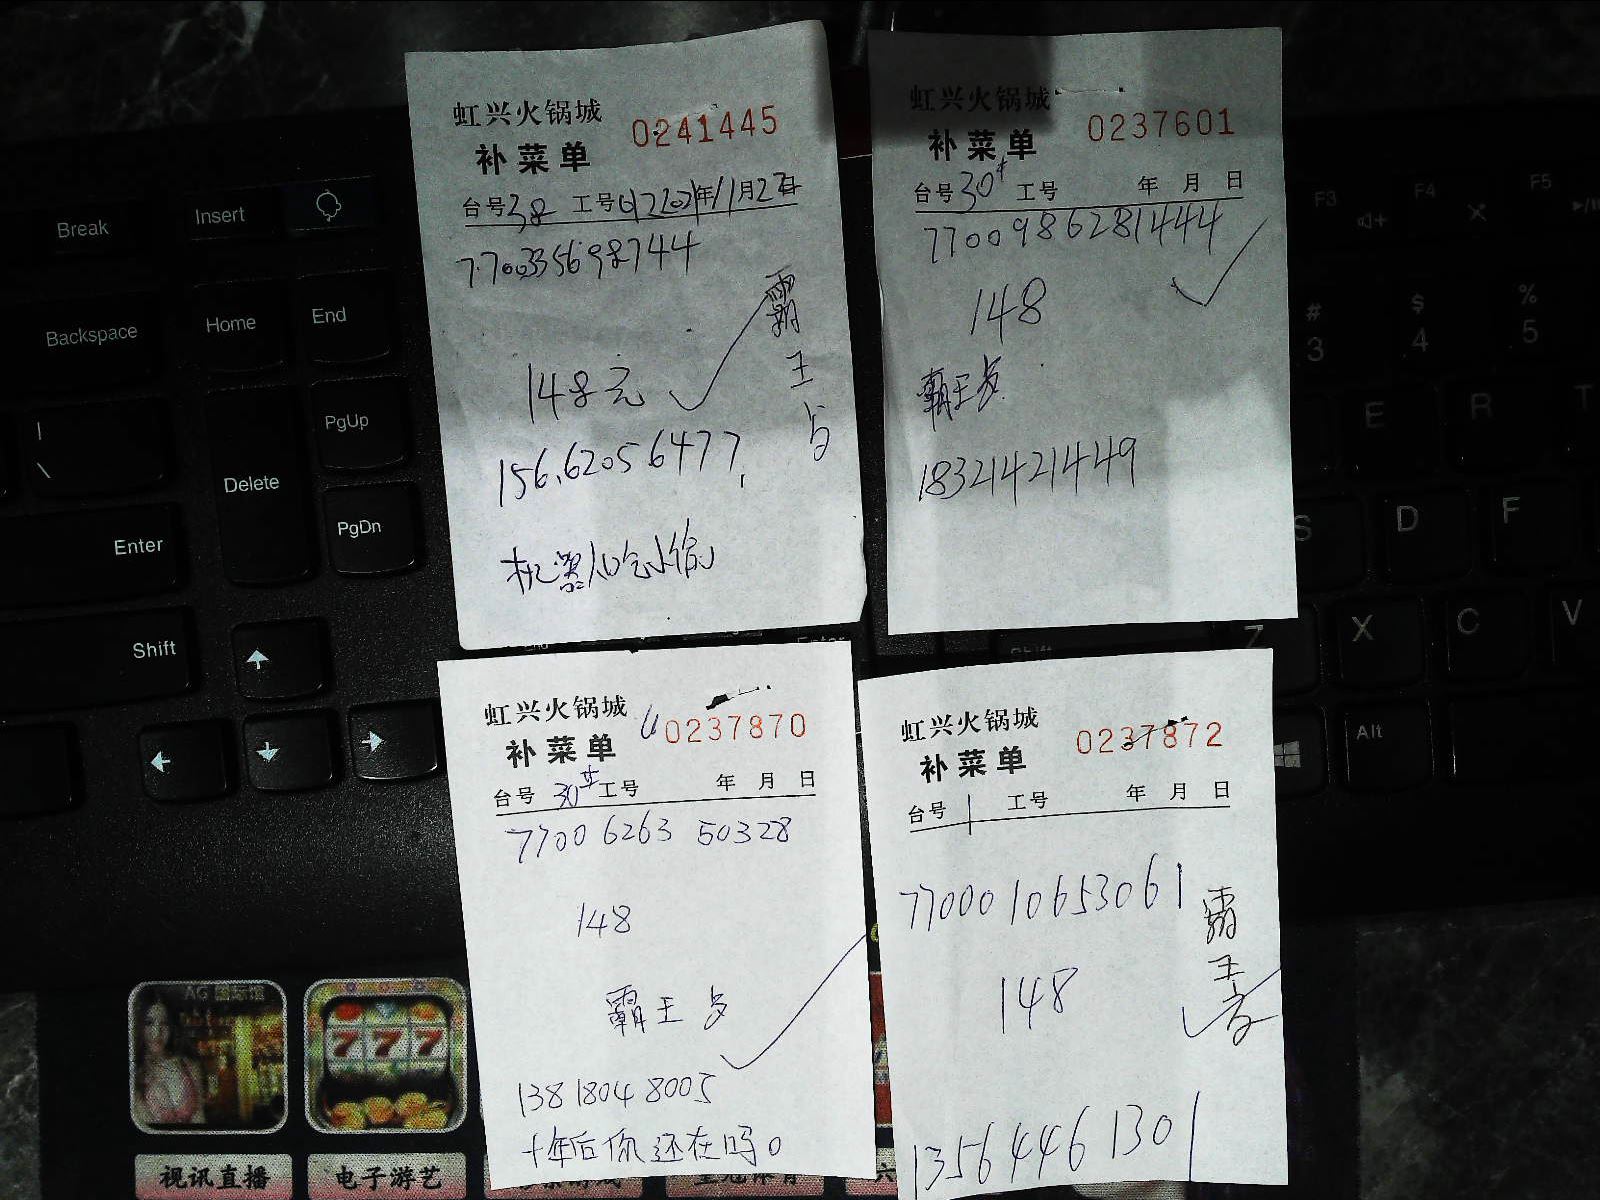 虹兴火锅城
0241445
补菜单
台号38 工号 年11月2日
7700335698744
霸王
148元
156.62056477
虹兴火锅城
0237601
补菜单
台号30# 工号 年 月 日
7700986281444
148
霸王
18321421449
虹兴火锅城
0237870
补菜单
台号 30# 工号 年 月 日
7700 6263 50328
148
霸王
138 1804 8005
十年后你还在吗。
虹兴火锅城
0237872
补菜单
台号 1 工号 年 月 日
7700010653061
148
霸王
13564461301
Break
Insert
Backspace
Home
End
|
\
Delete
PgUp
PgDn
Enter
Shift
F3
F4
F5
#
3
$
4
%
5
E
R
T
S
D
F
Z
X
C
V
Alt
777
视讯直播
电子游艺